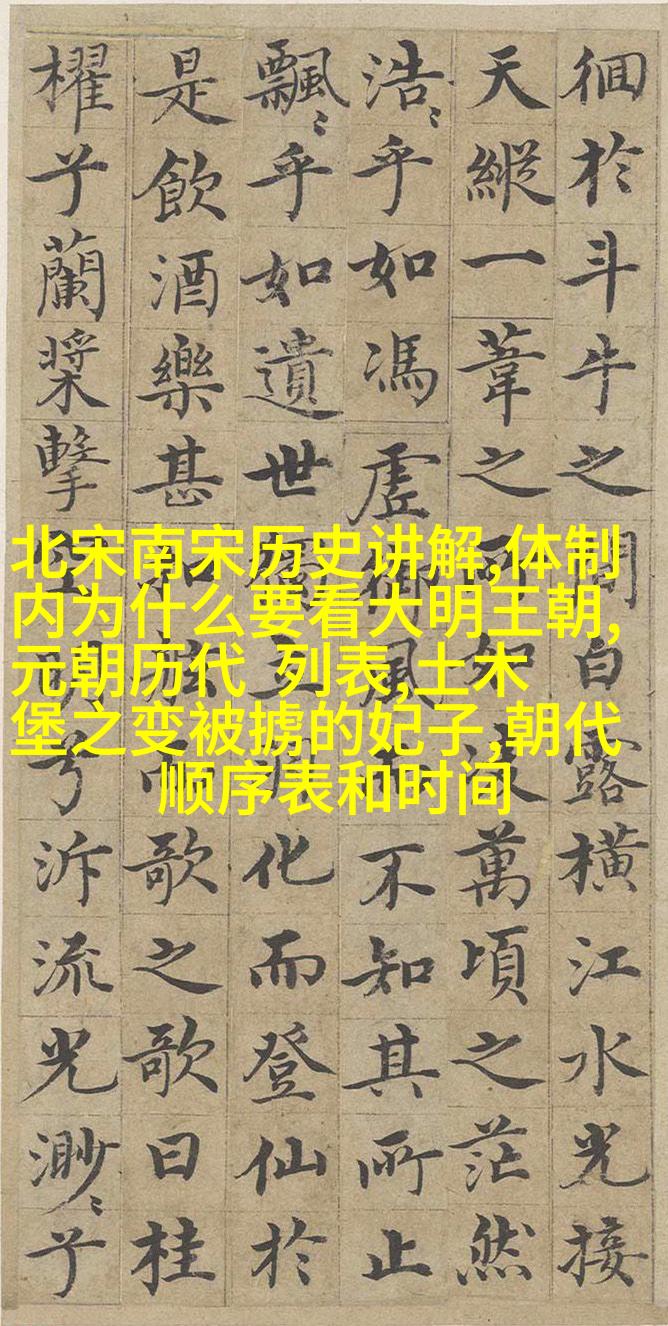 徊於斗牛之間白露橫江水光接
天縱一葦之所如凌萬頃之茫然
浩〻乎如馮虛御風而不知其所止
飄〻乎如遺世獨立羽化而登仙於
是飲酒樂甚而歌之歌曰桂
櫂兮蘭槳擊空明兮泝流光渺〻兮
北宋南宋历史讲解,体制
内为什么要看大明王朝,
元朝历代 列表,土木
堡之变被掳的妃子,朝代
顺序表和时间